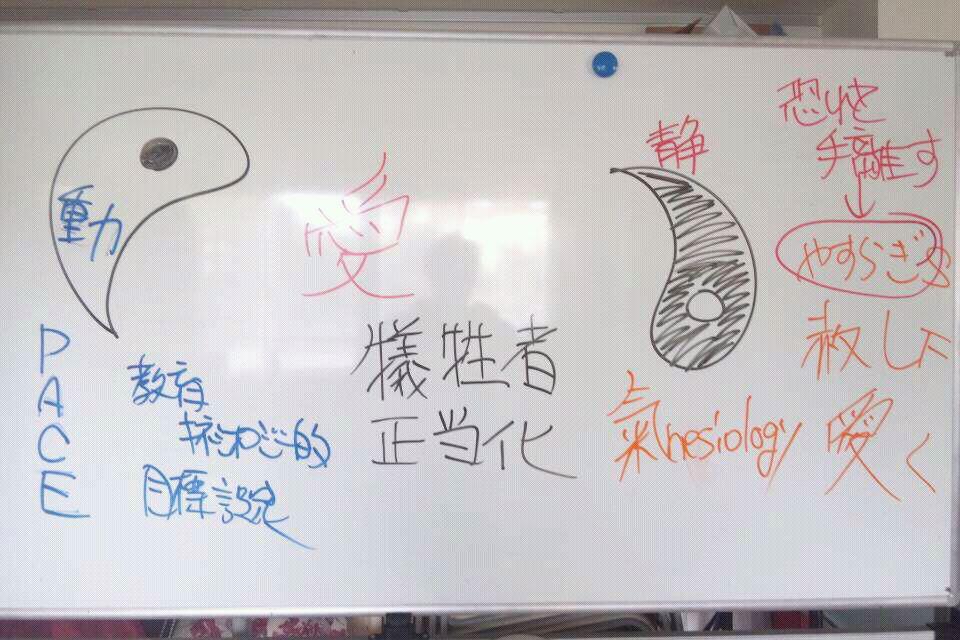 動
P
A
C
E
教育
目標設定
愛
犠牲者
正当化
静
恐れを
手離す
↓
やすらぎ
赦し
氣nesiology
愛